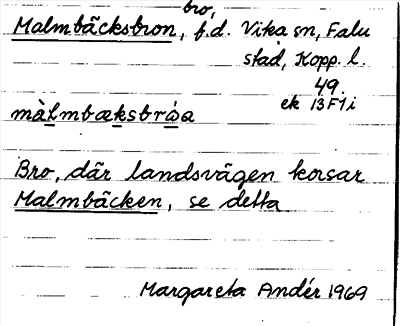 bro,
Malmbäcksbron, f.d. Vika sn, Falu
stad, Kopp. l.
49.
ek 13F1i
màlmbæksbrώa
Bro, där landsvägen korsar
Malmbäcken, se detta
Margareta Andér 1969